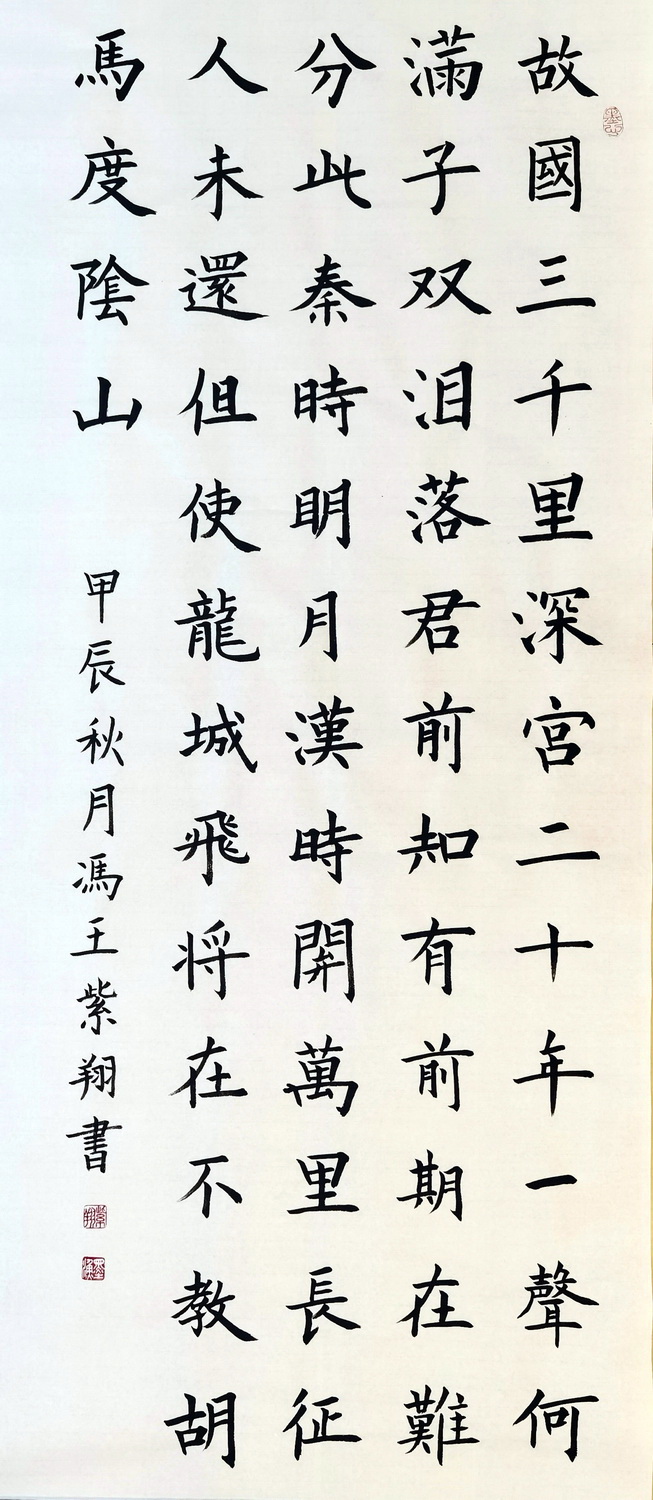 故國三千里深宮二十年一聲何
滿子双泪落君前知有前期在難
分此秦時明月漢時開萬里長征
人未還但使龍城飛将在不教胡
馬度隂山
甲辰秋月馮王紫翔書